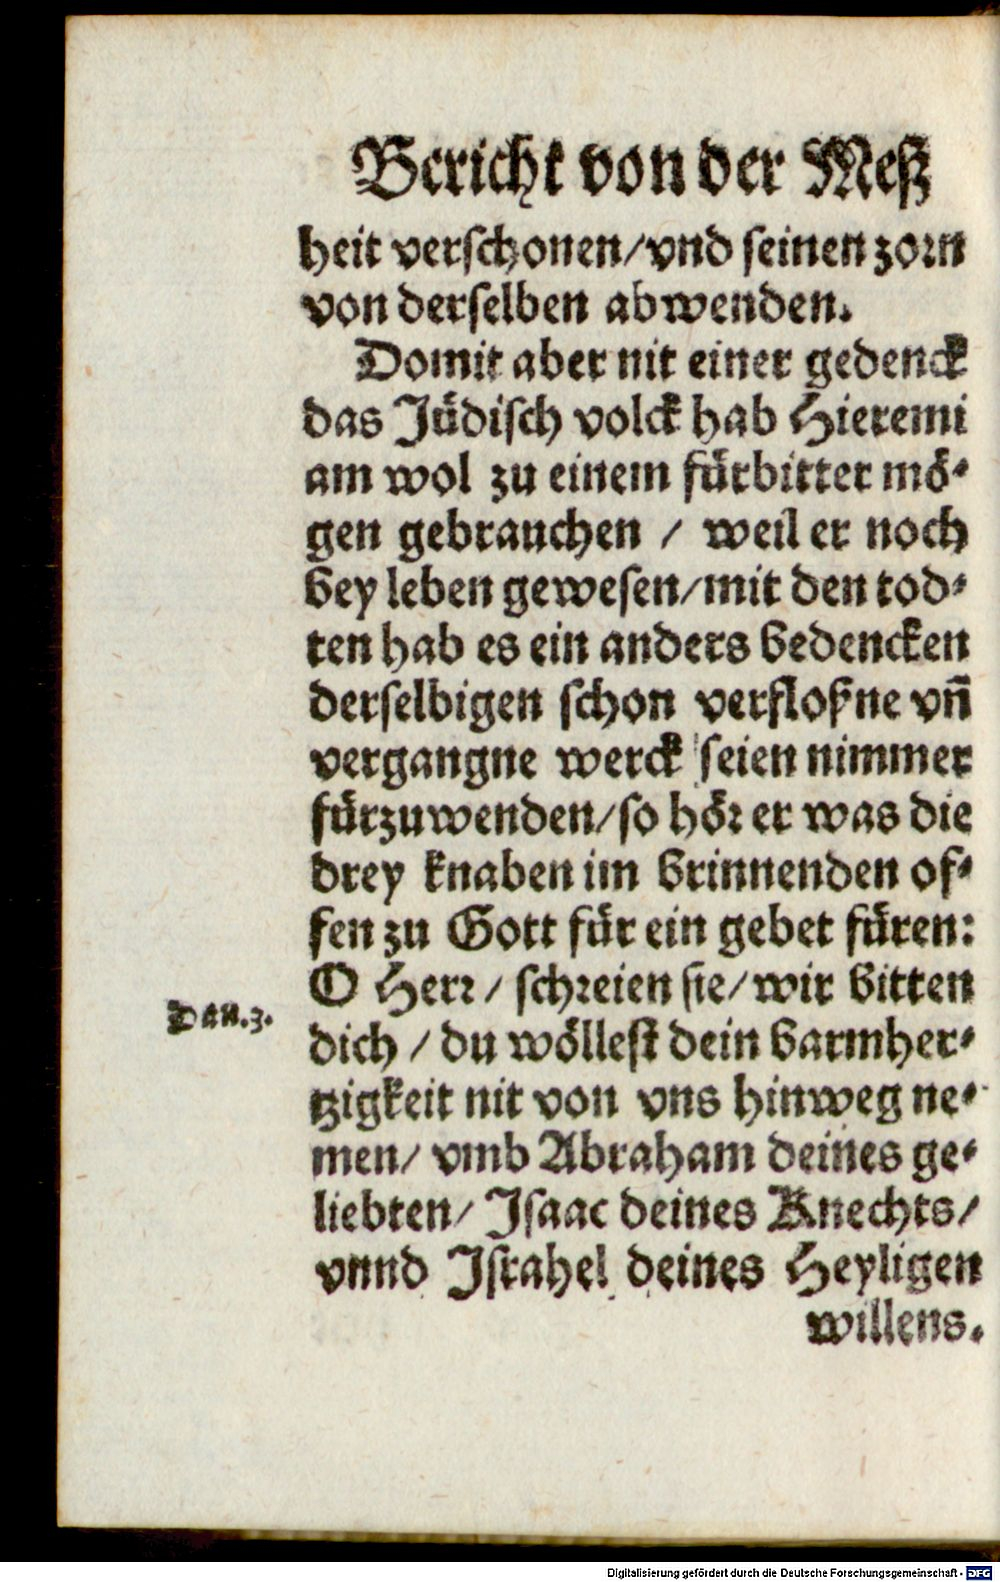 Bericht von der Meß
heit verschonen/vnd seinen zorn
von derselben abwenden.
Domit aber nit einer gedenck
das Jüdisch volck hab Hieremi
am wol zu einem fürbitter mö-
gen gebrauchen / weil er noch
bey leben gewesen/mit den tod-
ten hab es ein anders bedencken
derselbigen schon verfloßne vñ
vergangne werck seien nimmer
fürzuwenden/so hör er was die
drey knaben im brinnenden of-
fen zu Gott für ein gebet füren:
O Herr / schreien sie/wir bitten
Dan.3.
dich / du wöllest dein barmher-
tzigkeit nit von vns hinweg ne-
men/ vmb Abraham deines ge-
liebten/ Isaac deines Knechts/
vnnd Israhel deines Heyligen
willens.
Digitalisierung gefördert durch die Deutsche Forschungsgemeinschaft - DFG